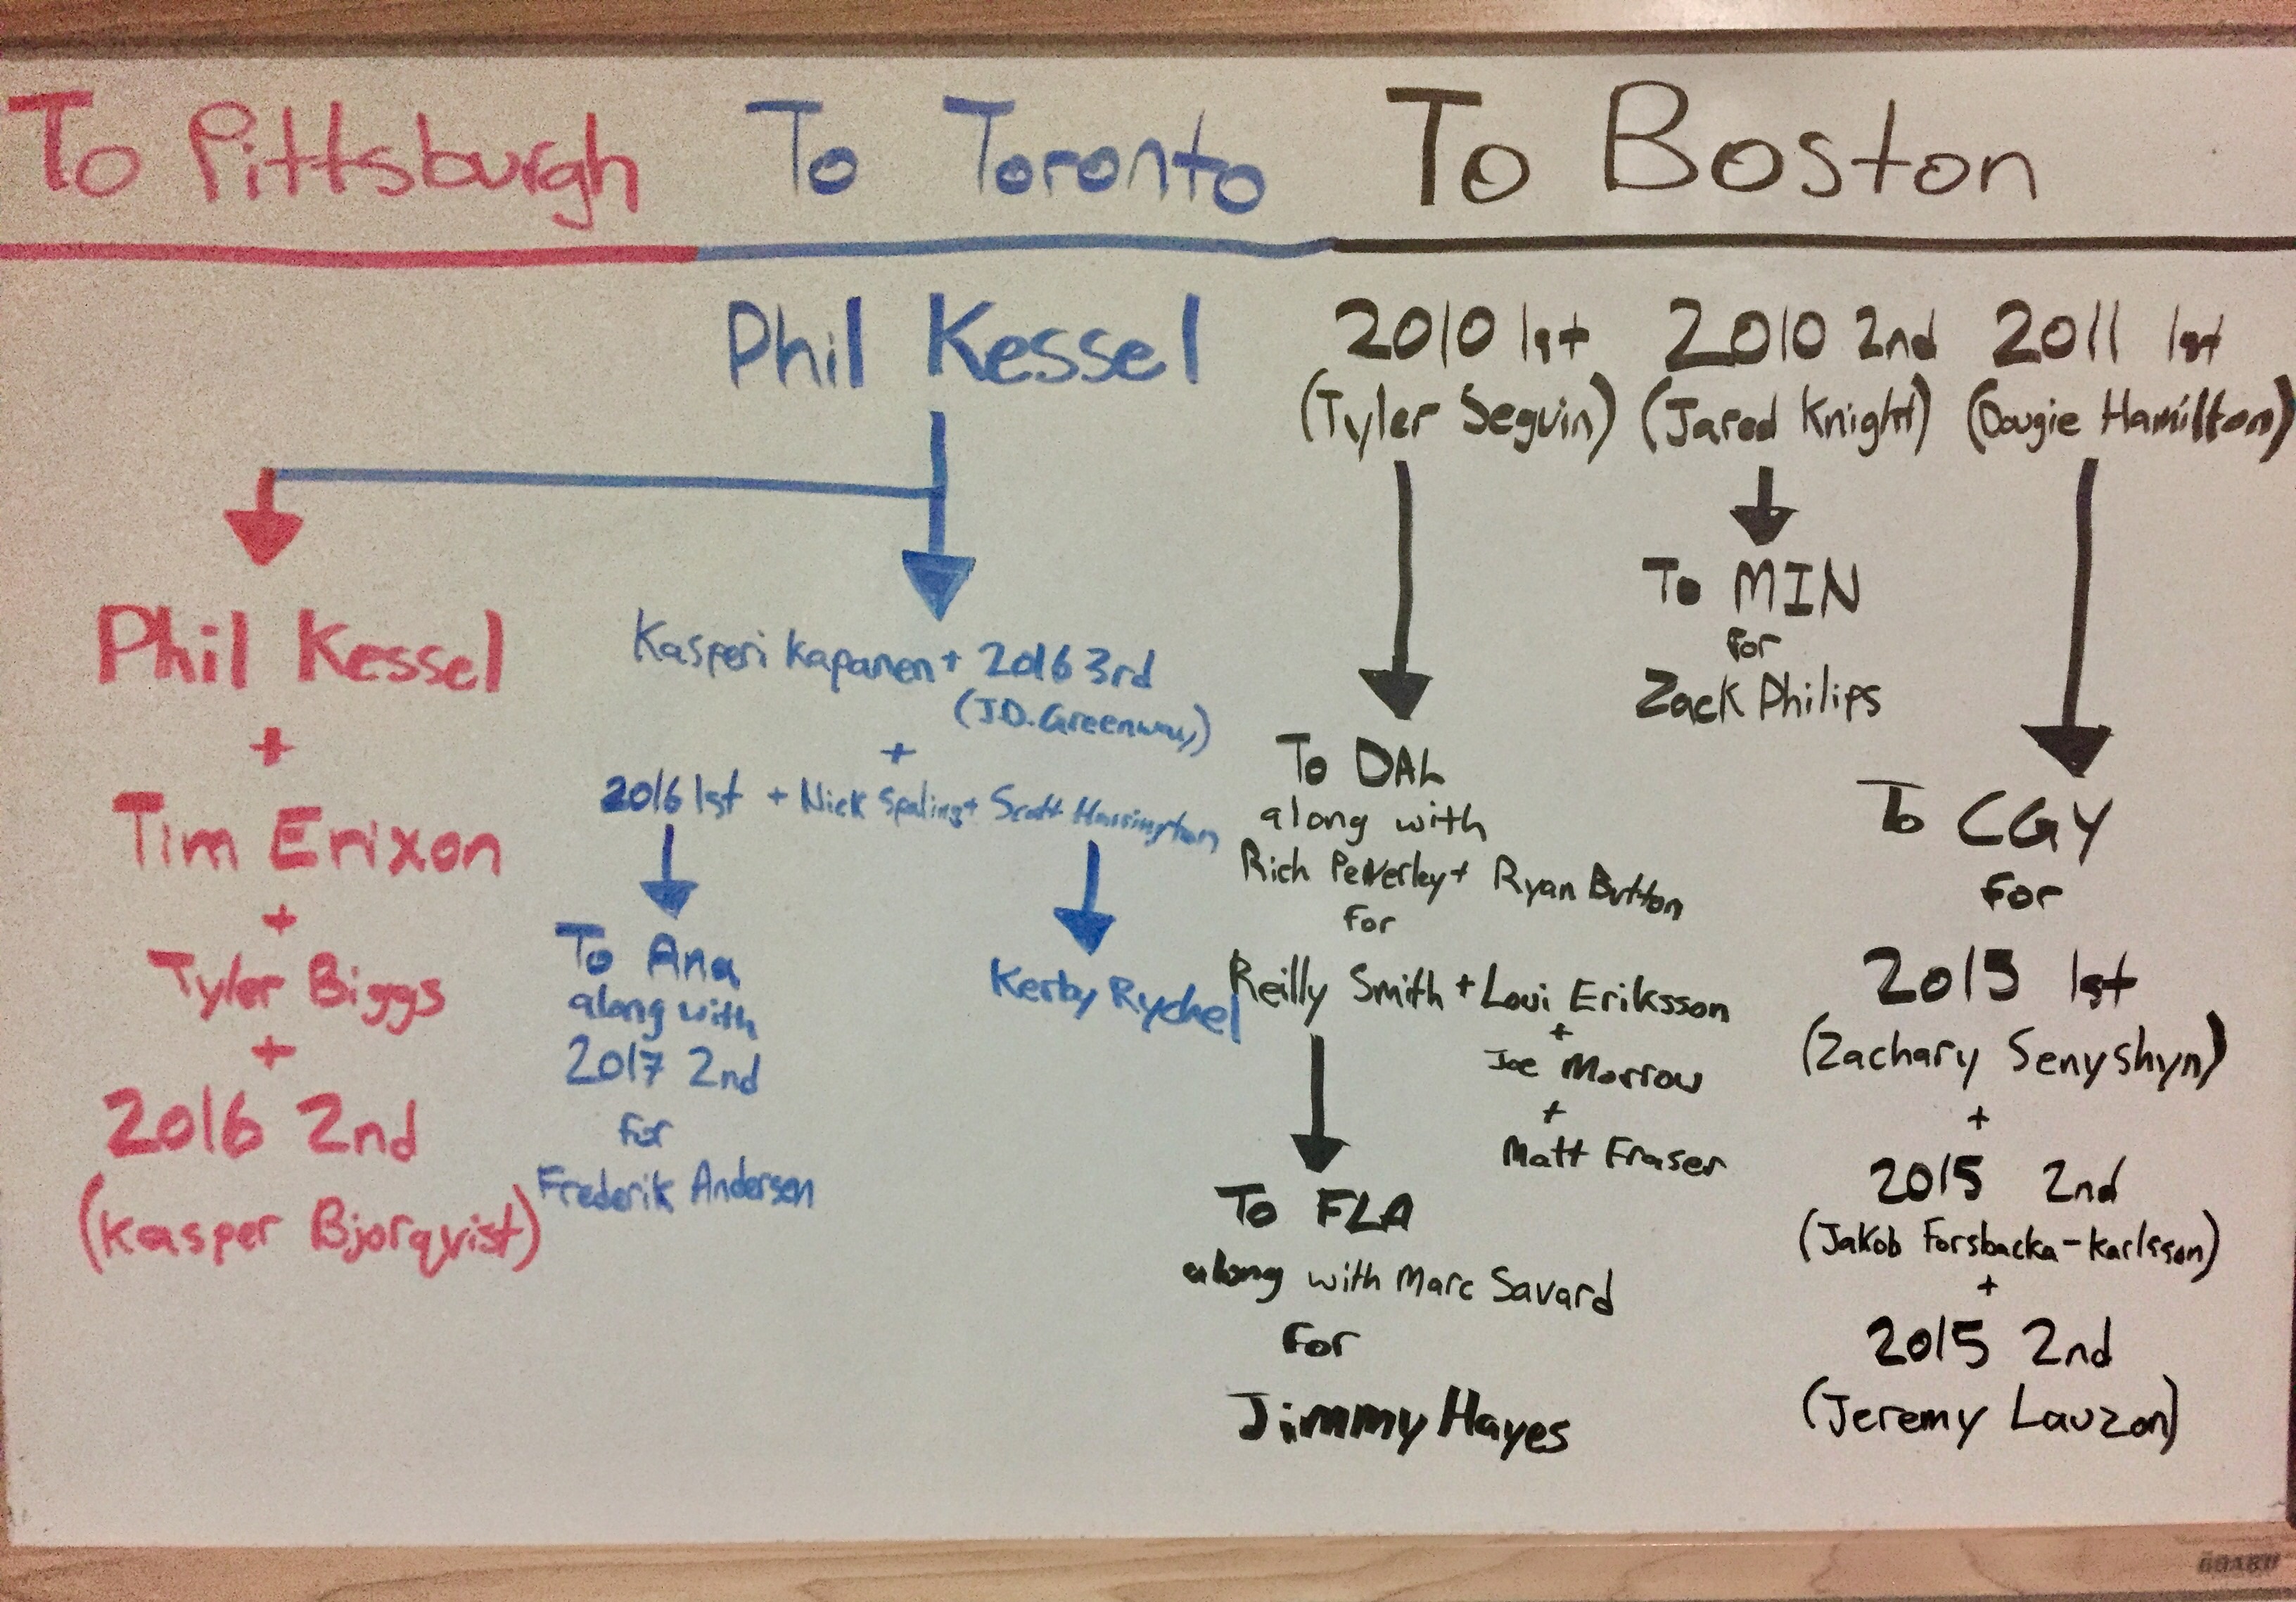 To Pittsburgh
To Toronto
To Boston
Phil Kessel
Phil Kessel
+
Tim Erixon
+
Tyler Biggs
+
2016 2nd
(Kasper Bjorqvist)
Kasperi Kapanen + 2016 3rd
(J.D. Greenway)
+
2016 1st + Nick Spaling + Scott Harrington
To Ana
along with
2017 2nd
for
Frederik Andersen
Kerby Rychel
2010 1st
(Tyler Seguin)
To DAL
along with
Rich Peverley + Ryan Button
for
Reilly Smith + Loui Eriksson
+
Joe Morrow
+
Matt Fraser
To FLA
along with Marc Savard
for
Jimmy Hayes
2010 2nd
(Jared Knight)
To MIN
for
Zack Philips
2011 1st
(Dougie Hamilton)
To CGY
for
2015 1st
(Zachary Senyshyn)
+
2015 2nd
(Jakob Forsbacka-Karlsson)
+
2015 2nd
(Jeremy Lauzon)